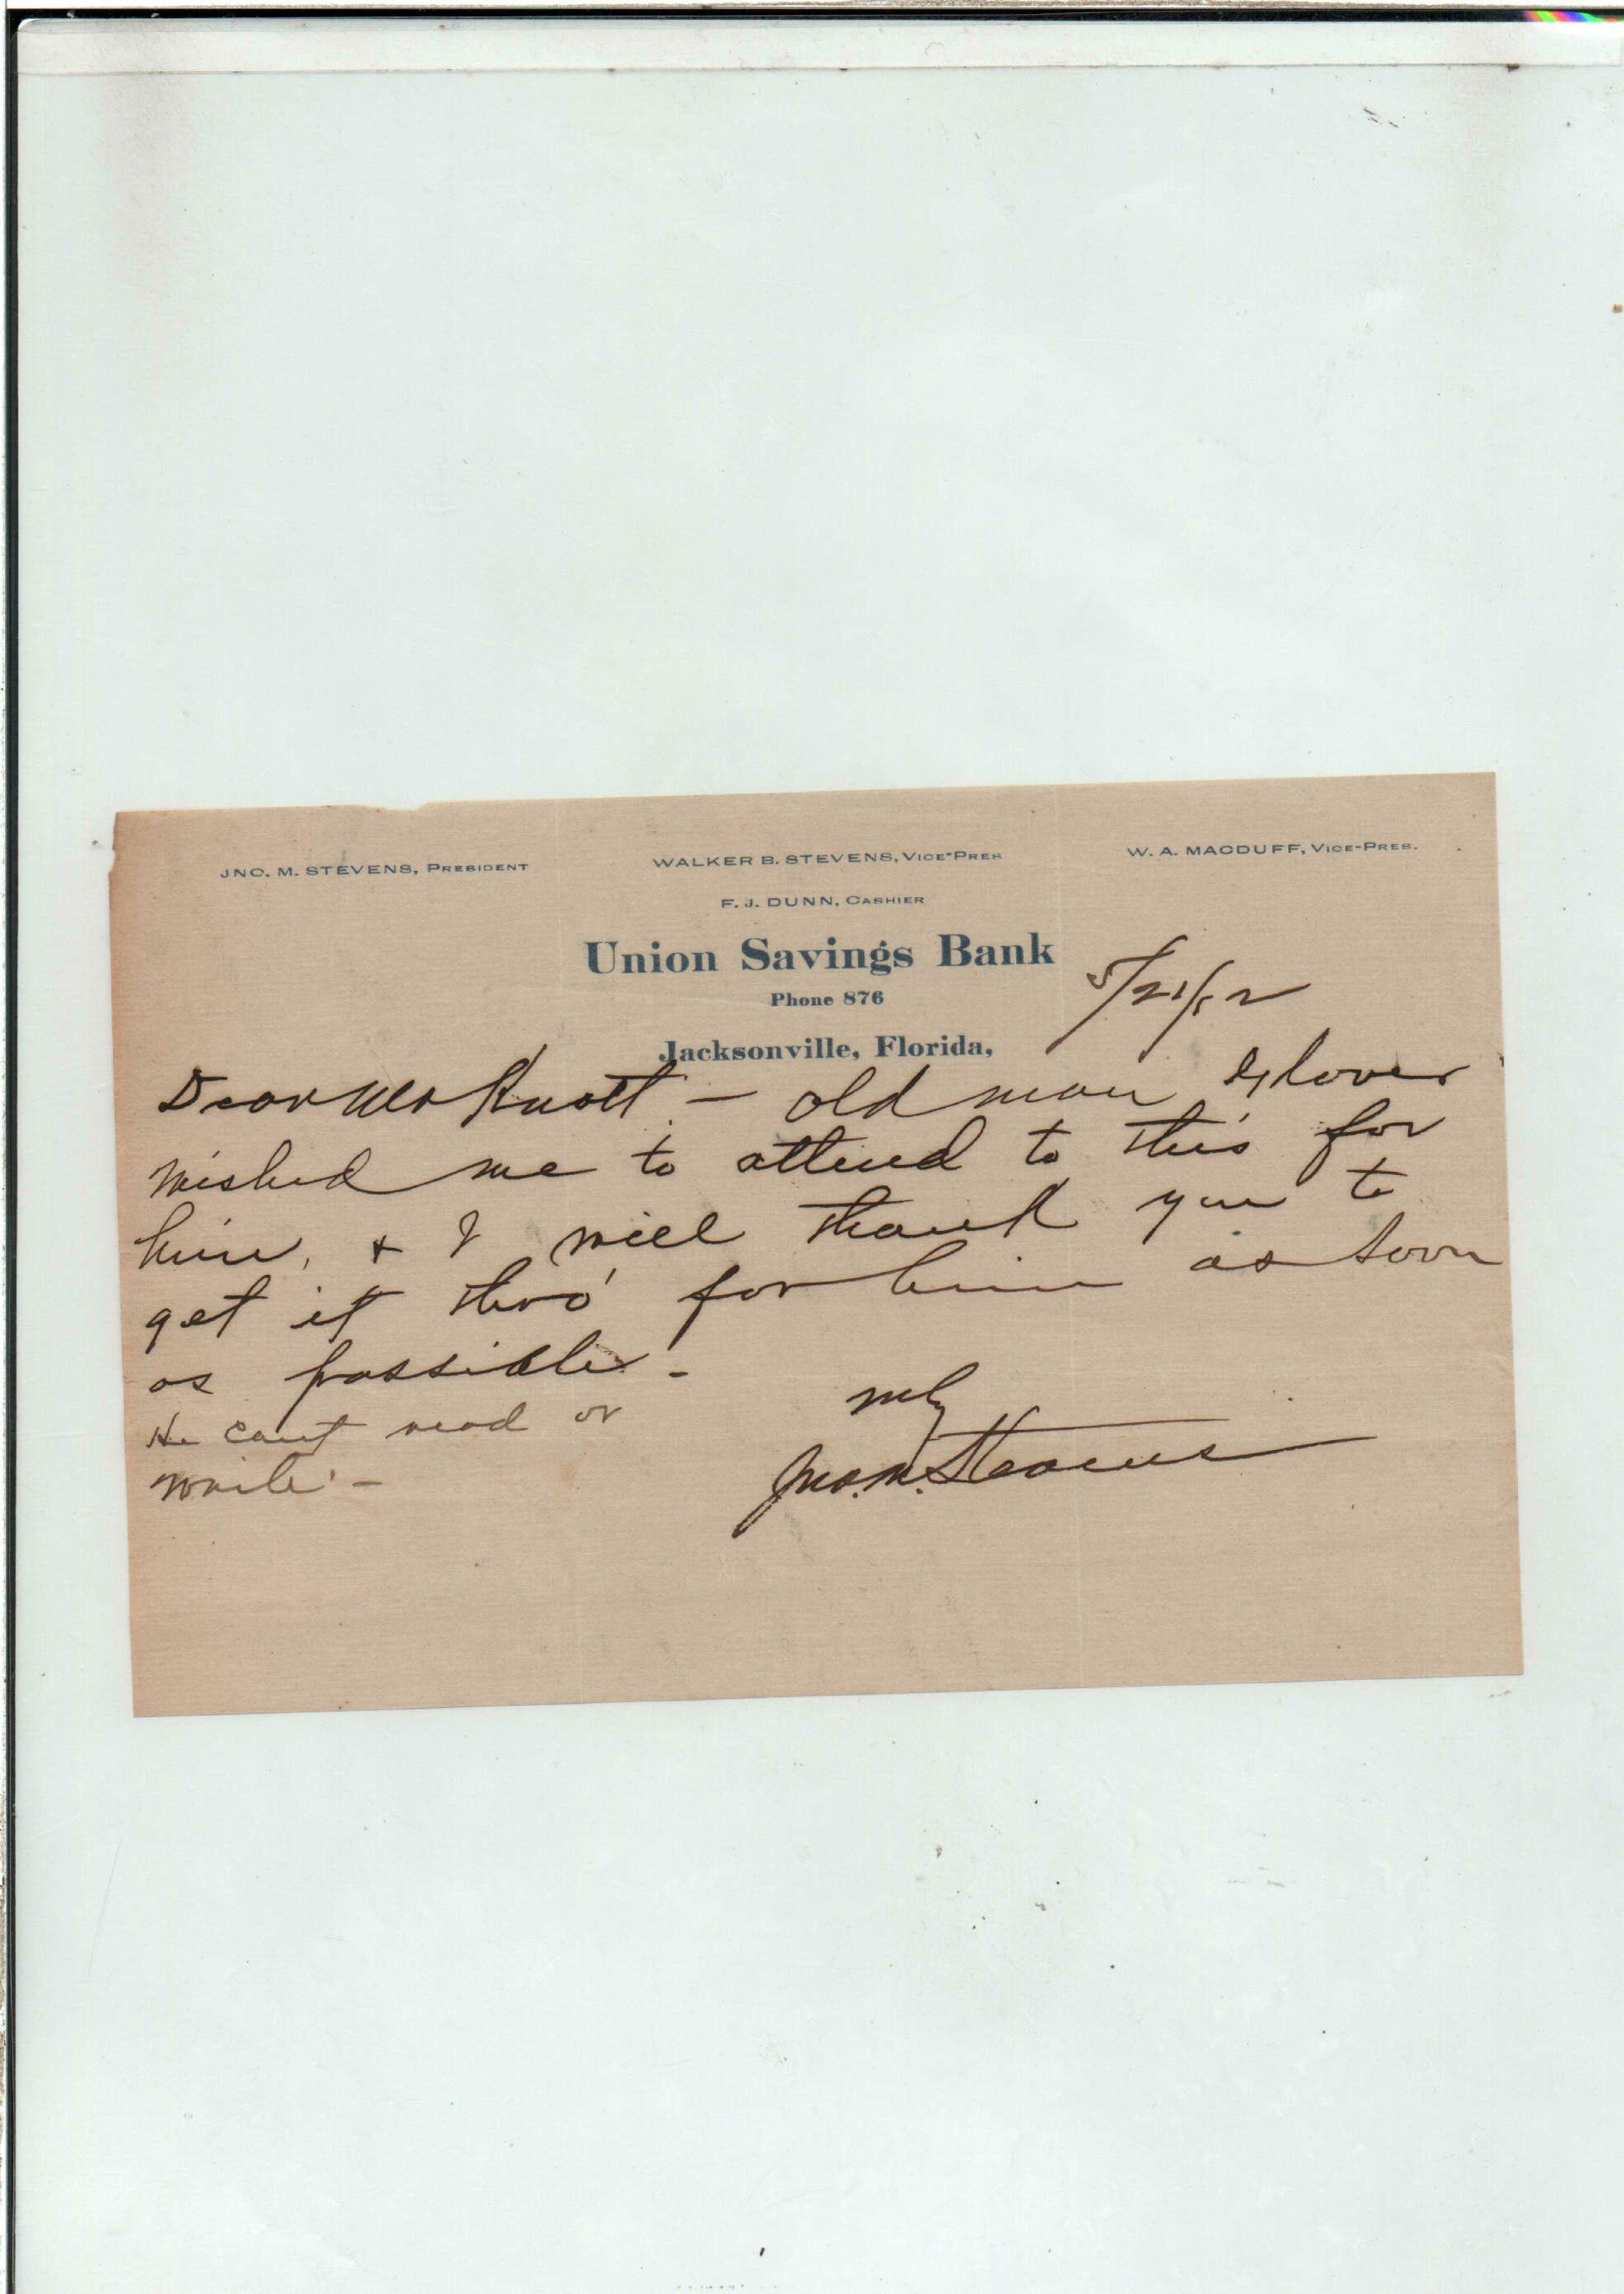 JNO. M. STEVENS, PRESIDENT
WALKER B. STEVENS, VICE-PRES
W. A. MACDUFF, VICE-PRES.
F. J. DUNN, CASHIER
Union Savings Bank
Phone 876
5/21/12
Jacksonville, Florida,
Dear Mr Knott - old man Glover
wished me to attend to this for
him, + I will thank you to
get it thro' for him as soon
as possible -
He can't read or
write -
Jno. M. Stevens